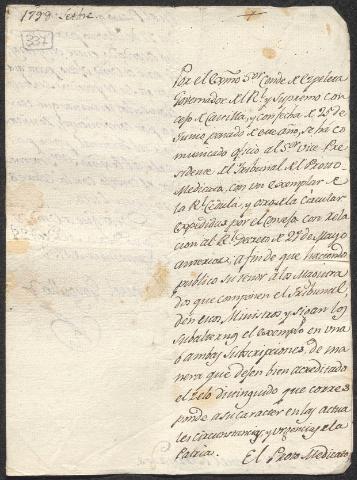 1799 Setbre
337
Por el Exmo Sor Conde de Ezpeleta
Governador del Rl y Supremo Con-
sejo de Castilla, y con fecha de 28 de
Junio, pasado de este año, se há co-
municado oficio al Sor Vice Pre-
sidente del Tribunal del Proto-
Medicato, con un exemplar de
la Rl Cedula, y otro de la circular
expedidas por el Consejo con rela-
cion al Rl Decreto de 27 de Mayo
anterior; a fin de que haciendo
publico su tenor a los Magistra-
dos que componen el Tribunal,
den estos, Ministros y sigan los
Subalternos el exemplo en una
o ambas Subscripciones, de ma-
nera que dejen bien acreditado
el zelo distinguido que corres-
ponde a su caracter en las actua-
les circunstancias, y urgencias de la
Patria.
El Proto-Medicato